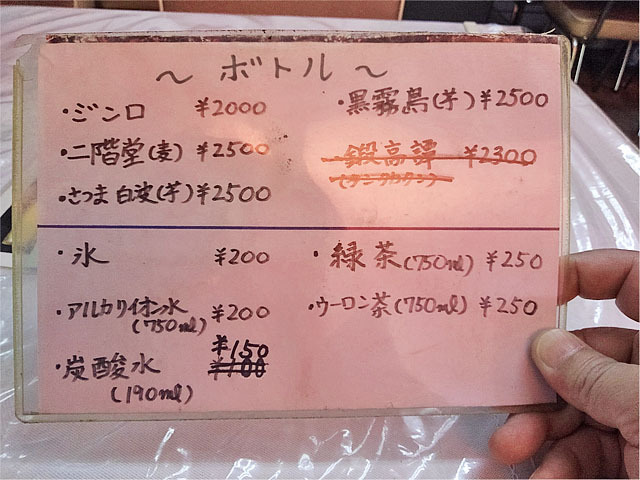 〜 ボトル 〜
・ジンロ ¥2000
・二階堂(麦) ¥2500
・さつま白波(芋) ¥2500
・黒霧島(芋) ¥2500
・鍛高譚 ¥2300
(タンタカタン)
・氷 ¥200
・アルカリイオン水 ¥200
(750ml)
・炭酸水 ¥150
¥100
(190ml)
・緑茶(750ml) ¥250
・ウーロン茶(750ml) ¥250